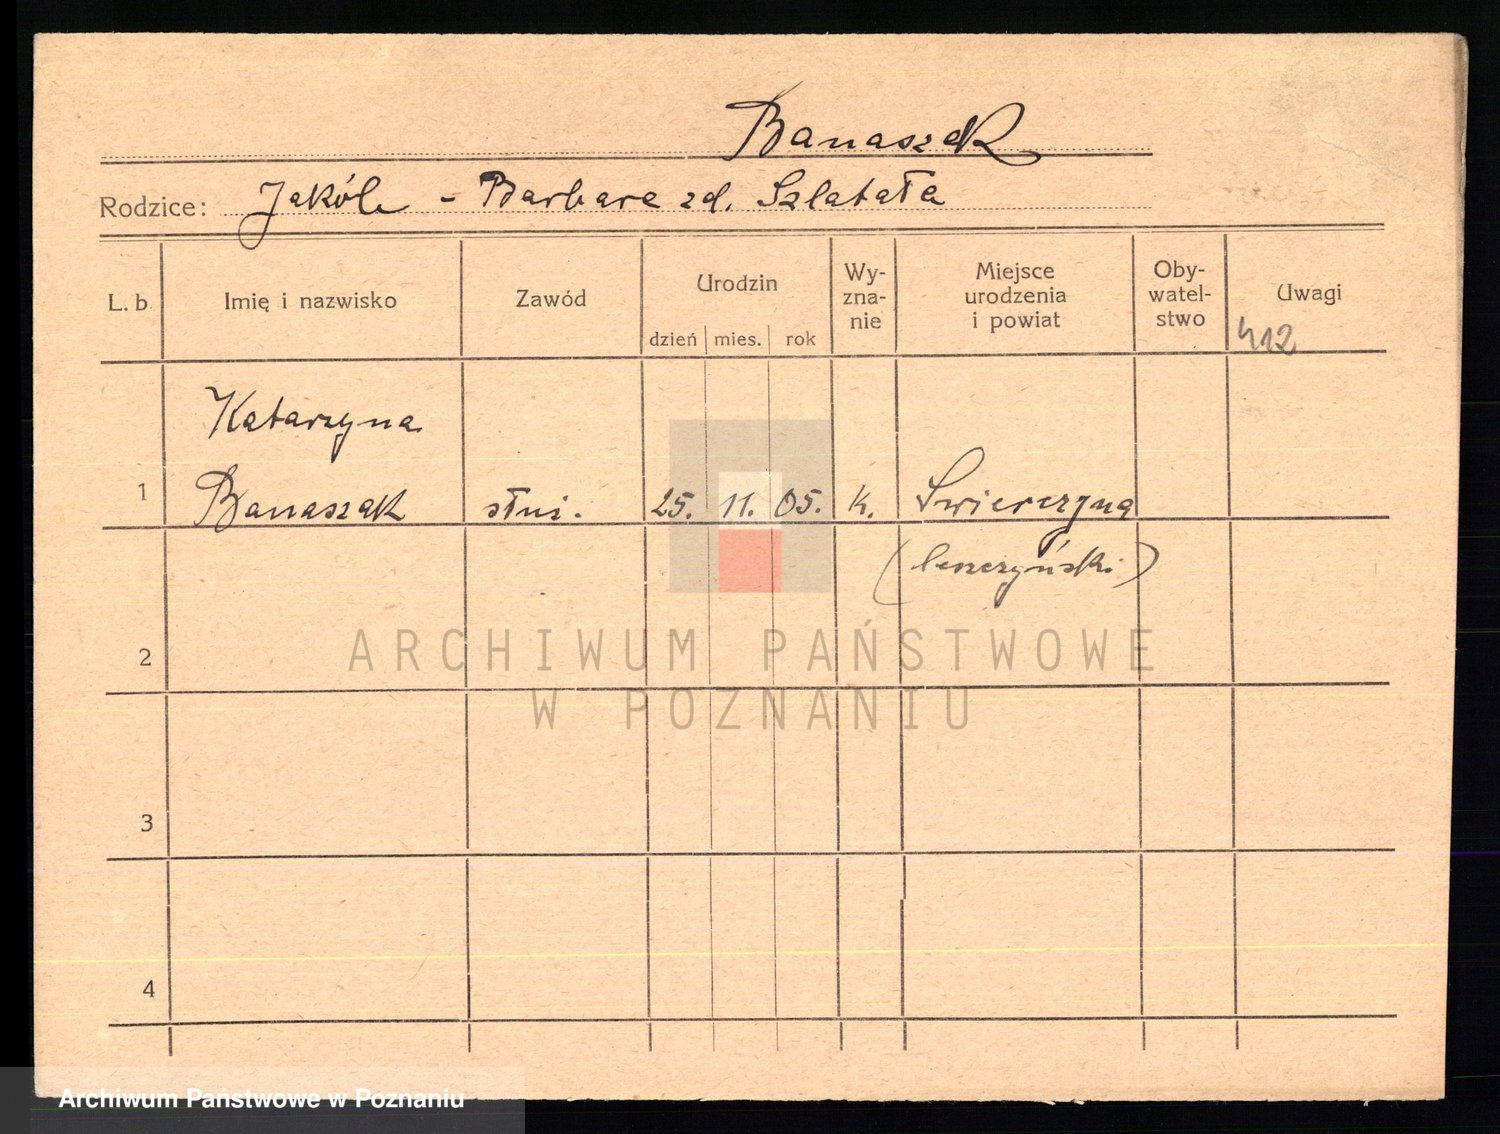 Banaszak
Rodzice: Jakób - Barbara zd. Szlatała
L. b. Imię i nazwisko Zawód Urodzin dzień mies. rok Wy-zna-nie Miejsce urodzenia i powiat Oby-watel-stwo Uwagi
412
Katarzyna
1 Banaszak służ. 25. 11. 05. k. Swierczyna
(leszczyński)
2
ARCHIWUM PAŃSTWOWE
W POZNANIU
3
4
Archiwum Państwowe w Poznaniu